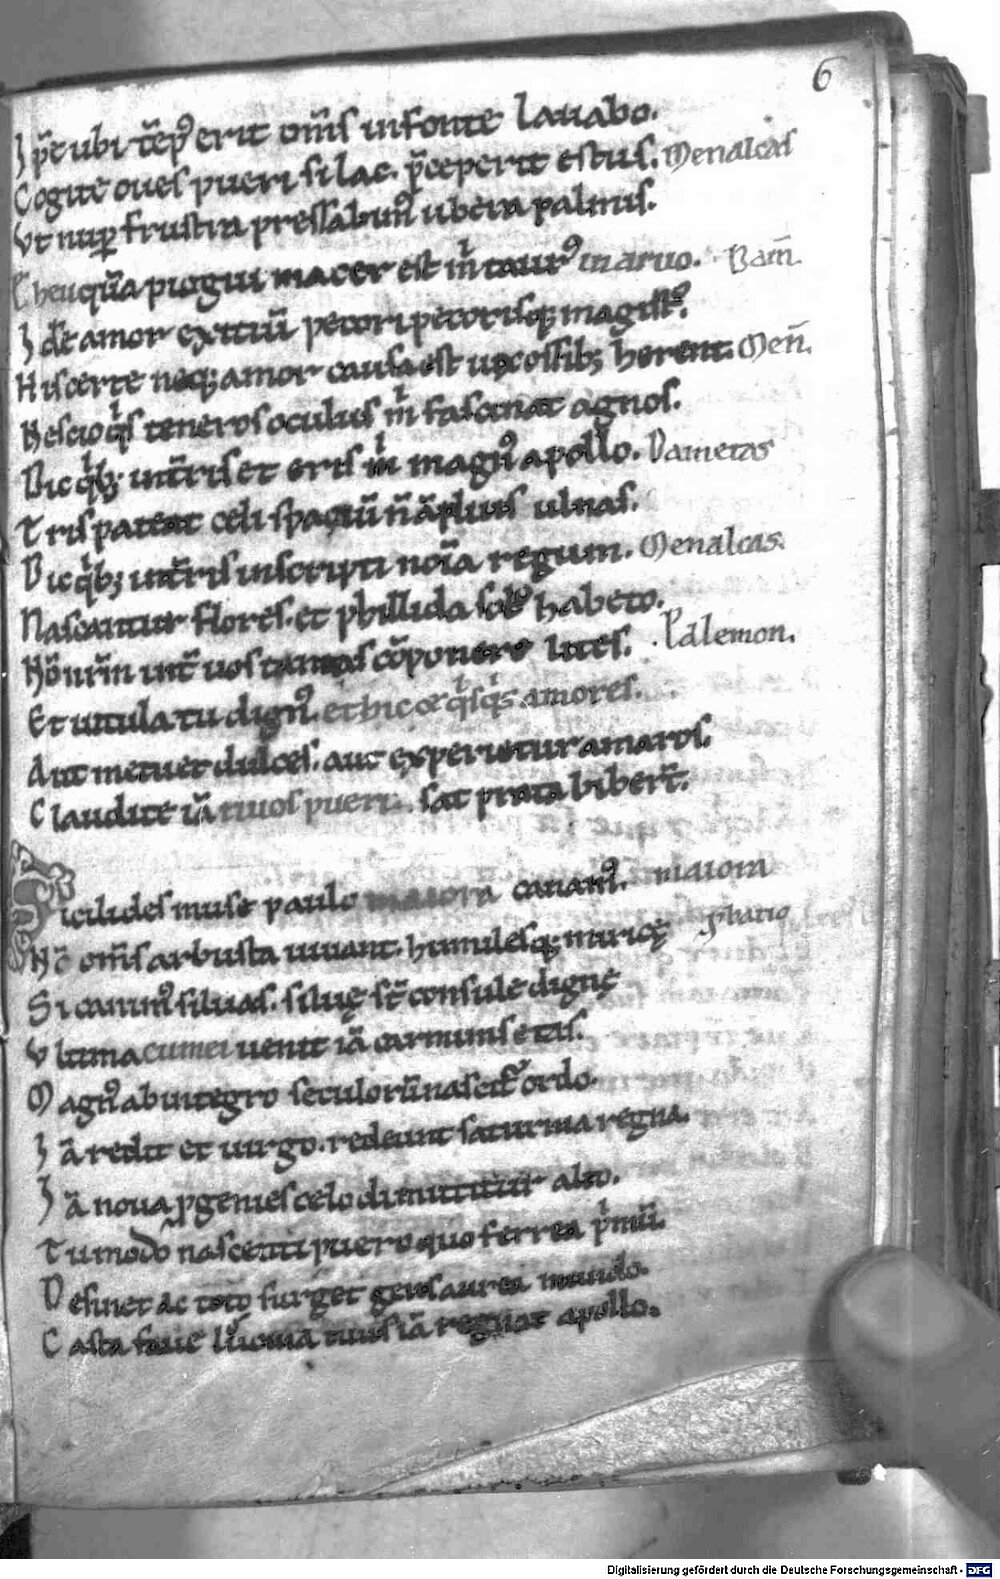 6
Ip̄e ubi tēp᷒ erit om̄s in fonte lauabo.
Cogite oues pueri si lac. p̄ceperit estus. Menalcas
Vt nup̱ frustra pressabim᷒ ubera palmis.
Eheu quā pingui macer est m̄ taur᷒ in aruo. Dam̄.
Idē amor exitiū pecori pecorisq; magistr᷒.
His certe neq; amor causa est uix ossib; herent. Men̄.
Nescio q̇s teneros oculus m̄ fascinat agnos.
Dic q̇b; int̄ris et eris m̄ magn᷒ apollo. Dametas
Tris pateat celi spaciū n̄ āplius ulnas.
Dic q̇b; int̄ris inscripti noīa regum. Menalcas.
Nascantur flores. et phillida sol᷒ habeto.
Nō nr̄m int̄ uos tantas cōponere lites. Palemon.
Et uitula tu dign᷒. et hic & q̇sq̇s amores.
Aut metuet dulces. aut experietur amaros.
Claudite iā riuos pueri. sat prata biber̄t.
Sicilides muse paulo maiora canam᷒. maiora
Nō om̄s arbusta iuuant. humilesq; miricę
Si canim᷒ siluas. siluę st̄ consule dignę
Vltima cumei uenit iā carminis etas.
Magn᷒ ab integro seculorū nascit᷒ ordo.
Iā redit et uirgo. redeunt saturnia regna.
Iā noua p̱genies celo dimittitur alto.
Tu modo nascenti puero quo ferrea ṗmū.
Desinet ac toto surget gens aurea mundo.
Casta faue lucina tuus iā regnat apollo.
Digitalisierung gefördert durch die Deutsche Forschungsgemeinschaft - DFG